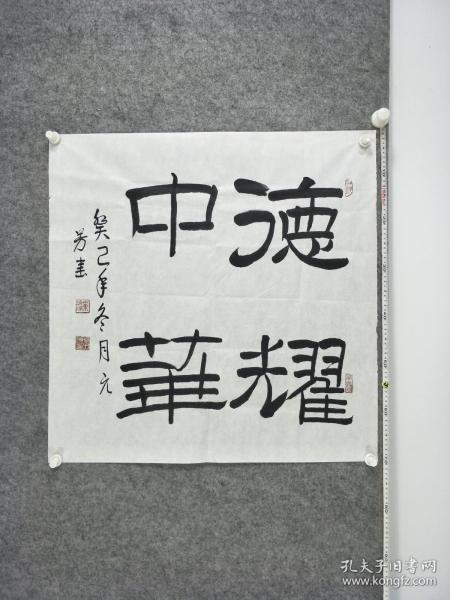 德耀
中華
癸巳年冬月元
芳書
孔夫子旧书网
www.kongfz.com